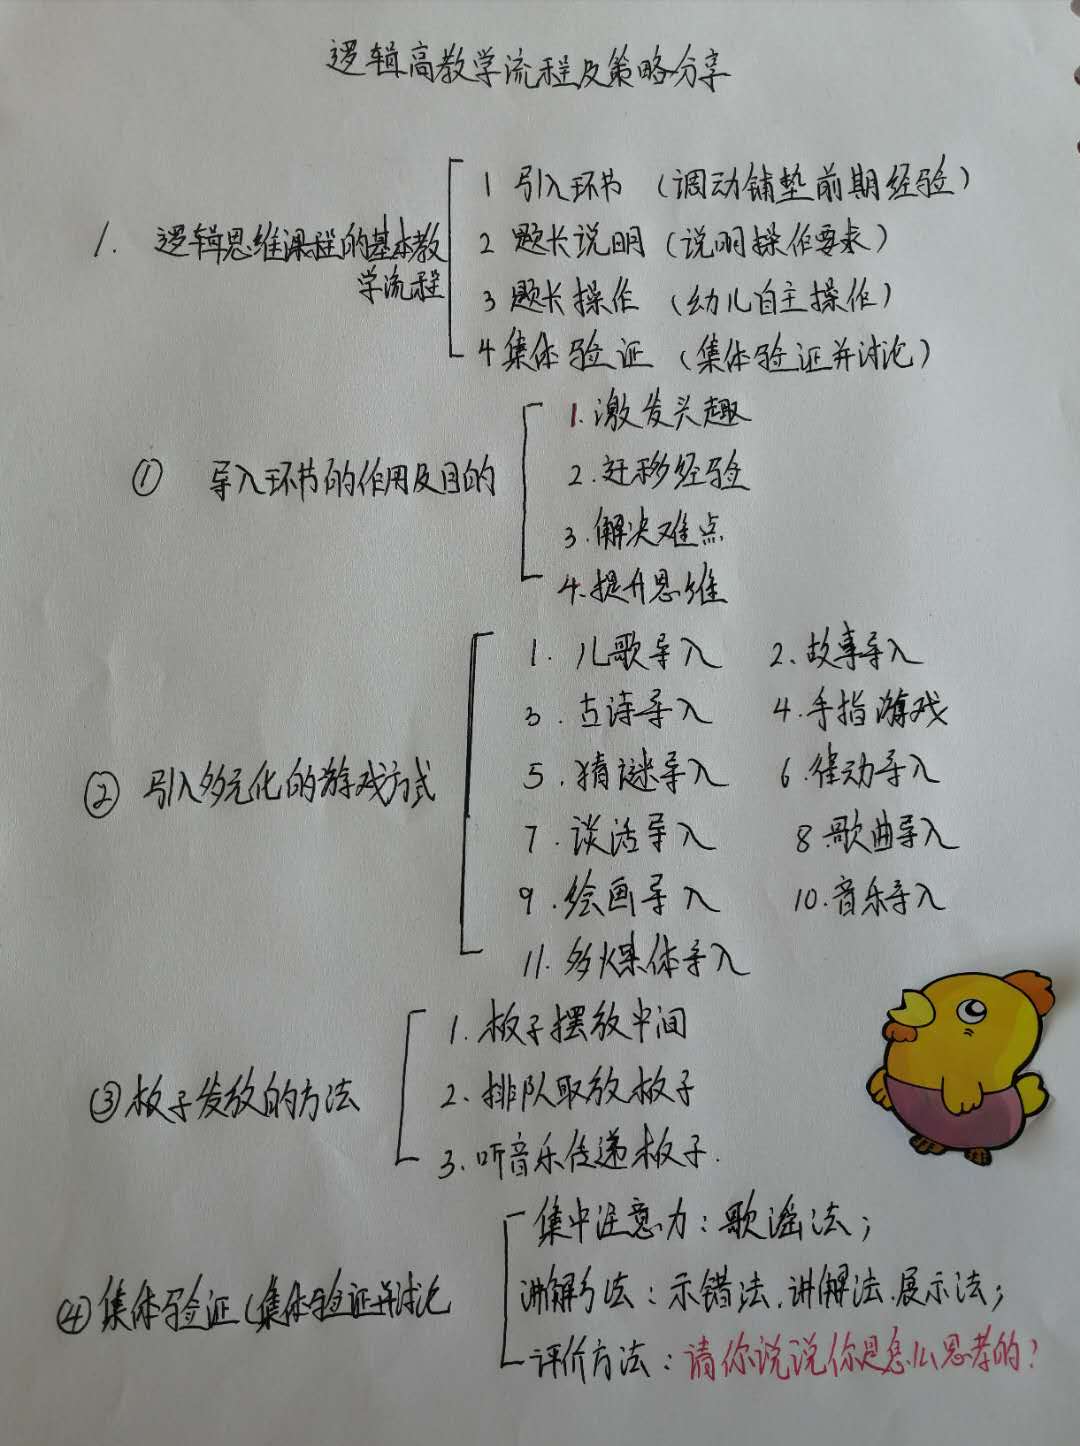 逻辑高教学流程及策略分享
1. 逻辑思维课程的基本教
学流程
1 引入环节（调动铺垫前期经验）
2 题长说明（说明操作要求）
3 题长操作（幼儿自主操作）
4 集体验证（集体验证并讨论）
① 导入环节的作用及目的
1.激发头趣
2.迁移经验
3.解决难点
4.提升思维
② 引入多元化的游戏方式
1. 儿歌导入 2.故事导入
3. 古诗导入 4.手指游戏
5.猜谜导入 6.律动导入
7.谈话导入 8.歌曲导入
9.绘画导入 10.音乐导入
11.多媒体导入
③板子发放的方法
1.板子摆放中间
2.排队取放板子
3.听音乐传递板子.
④集体验证(集体验证并讨论
集中注意力：歌谣法；
讲解方法：示错法.讲解法.展示法；
评价方法：请你说说你是怎么思考的？